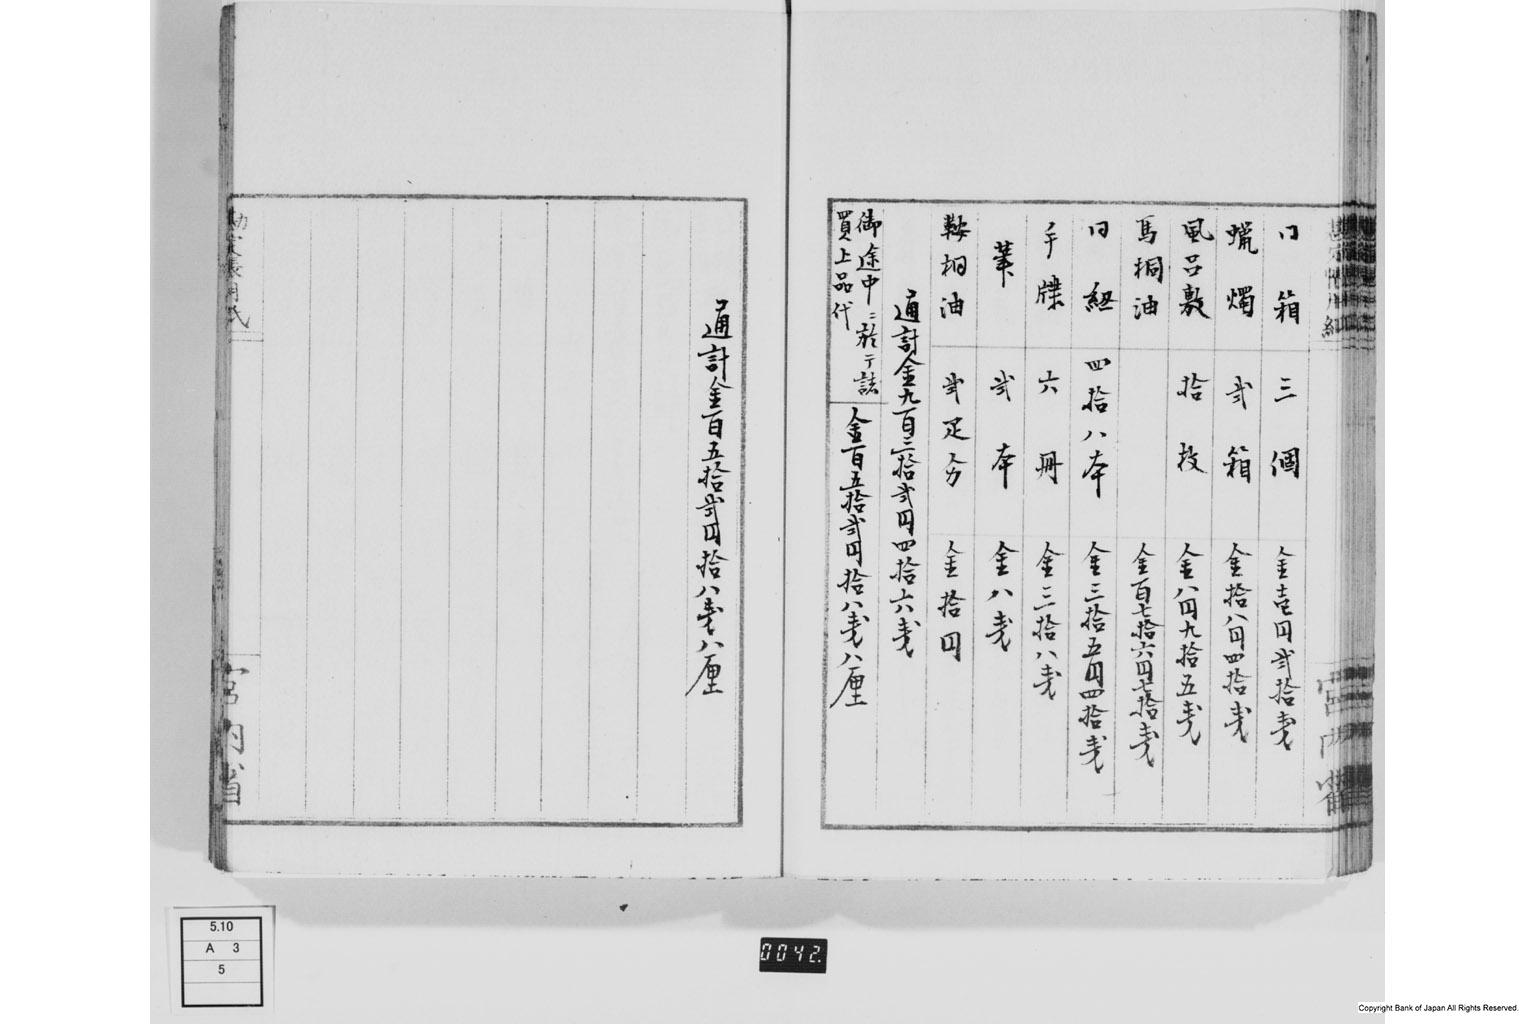 同箱 三個 金壱円弐拾戔
蝋燭 弐箱 金拾八円四拾戔
風呂敷 拾枚 金八円九拾五戔
馬桐油 金百七拾六円七拾戔
同紐 四拾八本 金三拾五円四拾戔
手牒 六冊 金三拾八戔
筆 弐本 金八戔
鞍桐油 弐疋分 金拾円
通計金九百三拾弐円四拾六戔
御途中ニ於テ諸
買上品代 金百五拾弐円拾八戔八厘
通計金百五拾弐円拾八戔八厘
宮内省
5.10
A 3
5
0042.
Copyright Bank of Japan All Rights Reserved.